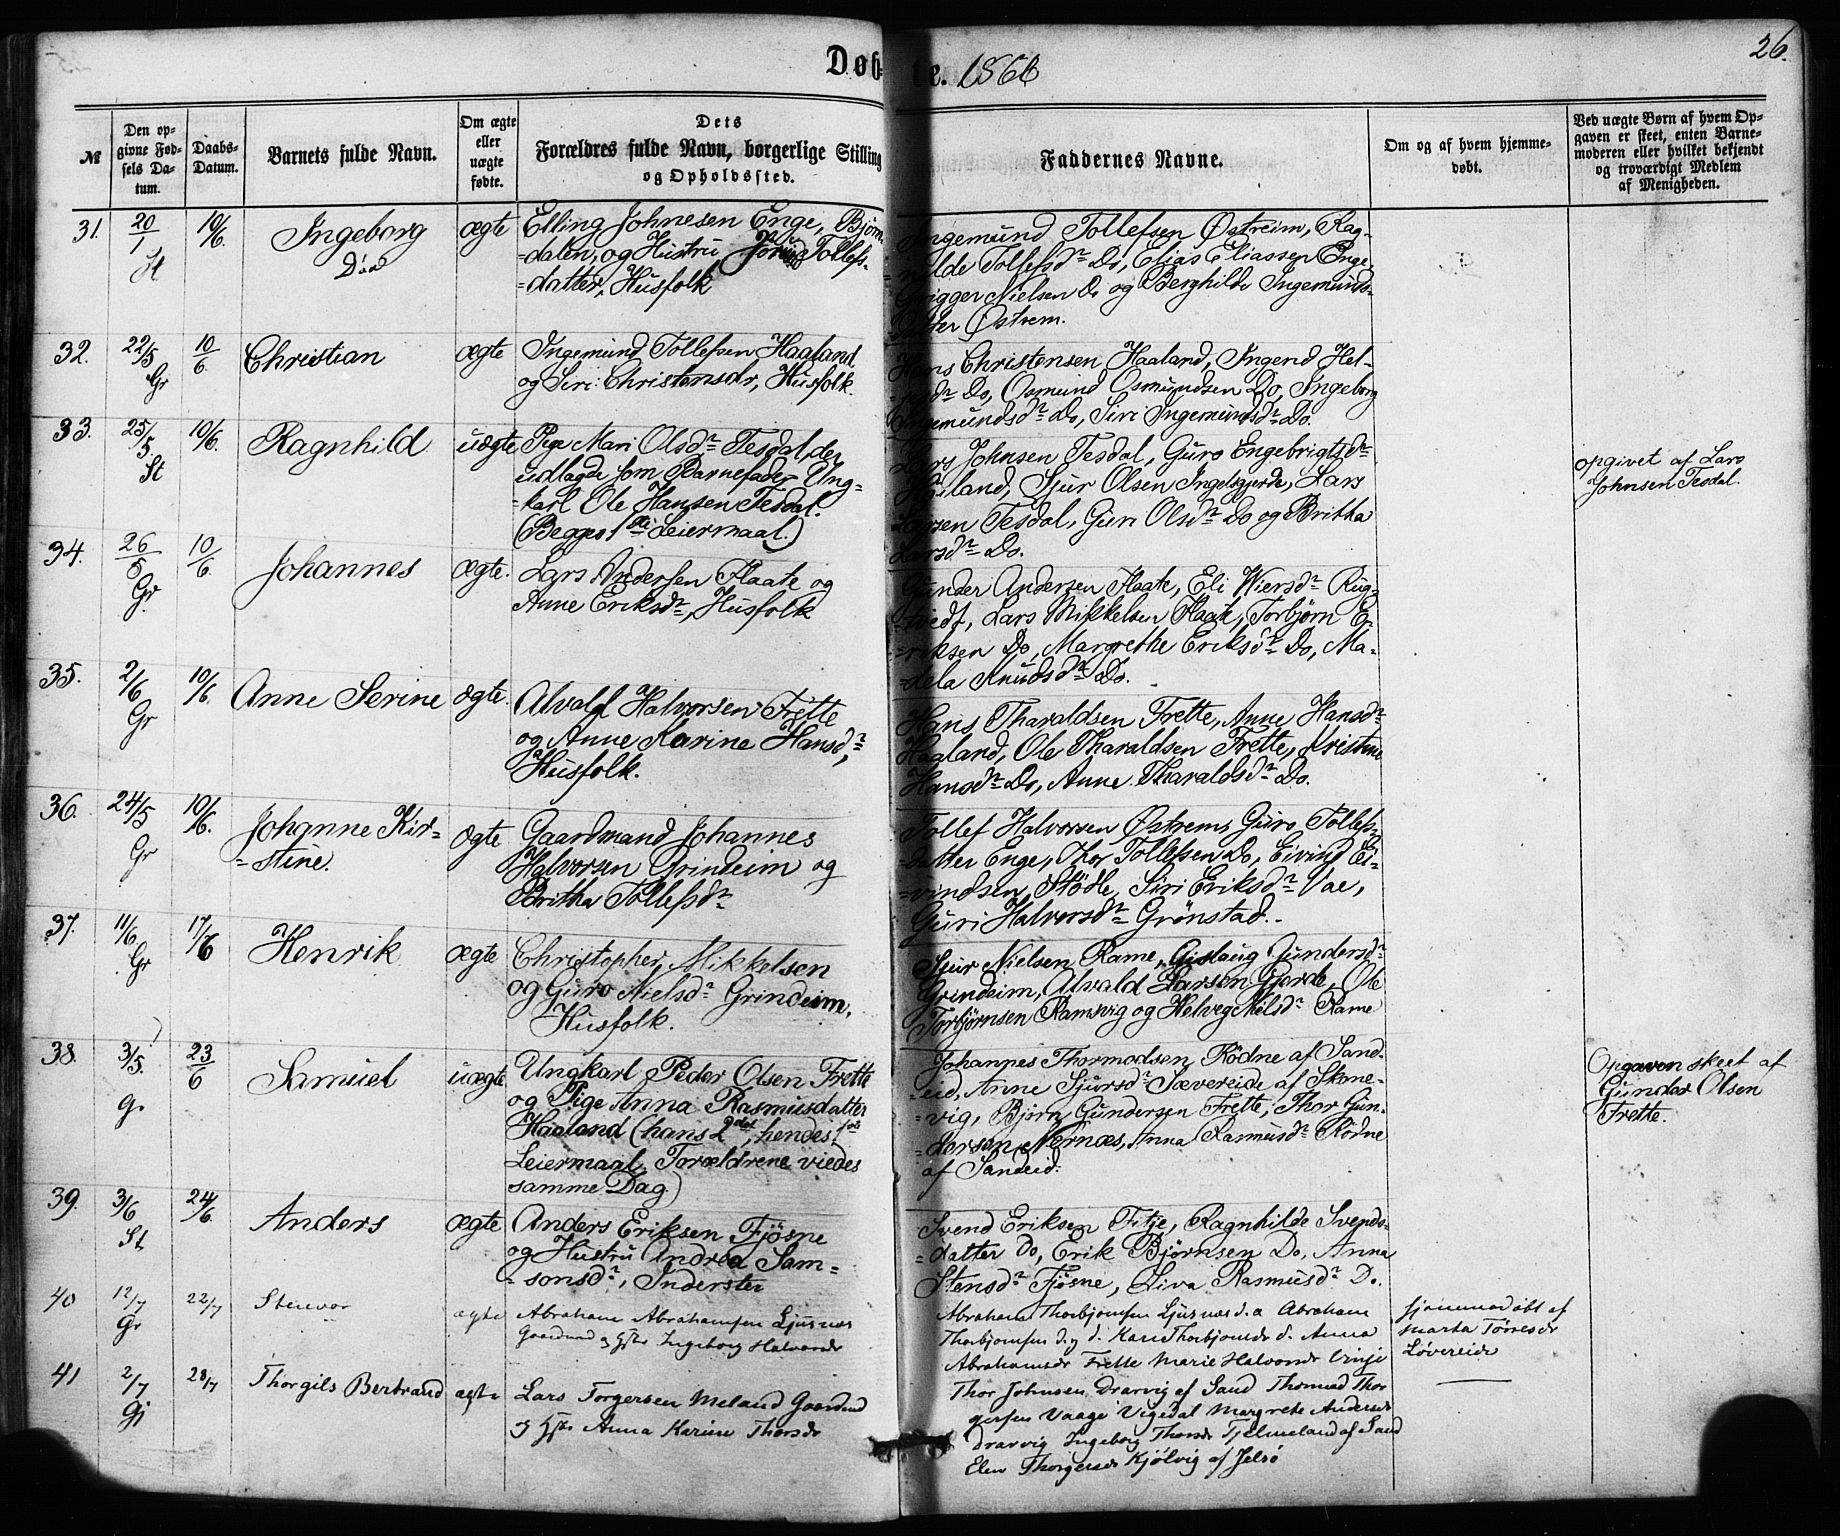 Døbte. 1866
26.
№
Den opgivne Fødsels Datum.
Daabs-Datum.
Barnets fulde Navn.
Om ægte eller uægte fødte.
Dets Forældres fulde Navn, borgerlige Stilling og Opholdssted.
Faddernes Navne.
Om og af hvem hjemmedøbt.
Ved uægte Børn af hvem Opgaven er skeet, enten Barnemoderen eller hvilket bekjendt og troværdigt Medlem af Menigheden.
31. 20/1 St 10/6. Ingeborg ægte
Elling Johnesen Enge, Bjørn-
=dalen, og Hustru Tollefs-
=datter, Husfolk
Ingemund Tollefsen Østreim, Rag-
=nilde Tollefsdr Do, Elias Eliassen Enge,
Grigger Nielsen Do og Berghilde Ingemunds-
=datter Østrem.
32. 22/5 Gr 10/6. Christian ægte
Ingemund Tollefsen Haaland
og Siri Christensdr, Husfolk.
Hans Christensen Haaland, Ingerd Hel-
Do, Osmund Osmundsen Do, Ingeborg
Ingemundsdr Do, Siri Ingemundsdr Do.
33. 25/5. St 10/6. Ragnhild uægte
Pige Mari Olsdr Tesdal, der
udlagde som Barnefader Ung-
=karl Ole Hansen Tesdal.
(Begges 1ste Leiermaal.)
Lars Johnsen Tesdal, Guro Engebrigtsdr
Sjur Olsen Ingelsgjerde, Lars
Larsen Tesdal, Guri Olsdr Do og Britha
Larsdr Do.
opgivet af Lars
Johnsen Tesdal.
34. 26/5 Gr. 10/6. Johannes ægte.
Lars Andersen Flaate og
Anne Eriksdr, Husfolk
Gunder Andersen Flaate, Eli Wiersdr Rug-
=tvedt, Lars Mikkelsen Flaate, Torbjørn E-
=riksen Do, Margrethe Eriksdr Do, Ma-
=dela Knudsdr Do.
35. 2/6 Gr 10/6 Anne Serine ægte.
Alvald Halvorsen Frette
og Anne Karine Hansdr,
Husfolk.
Hans Tharaldsen Frette, Anne Hansdr
Haaland, Ole Tharaldsen Frette, Kristine
Hansdr Do, Anne Tharaldsdr Do.
36. 24/5 Gr 10/6. Johanne Kir-
=stine. ægte
Gaardmand Johannes
Halvorsen Grindeim og
Britha Tollefsdr
Tollef Halvorsen Østrem, Guro Tollefs-
=datter Enge, Thor Tollefsen Do, Eivind Ei-
=vindsen Stødle, Siri Eriksdr Vae,
Guri Halvorsdr Grönstad.
37. 11/6. Gr 17/6 Henrik ægte
Christopher Mikkelsen
og Guro Nielsdr Grindeim,
Husfolk.
Sjur Nielsen Rame, Gislaug Gundersdr
Grindeim, Alvald Larsen Gjerde, Ole
Torbjørnsen Ramsvig og Helveg Nilsdr Rame
38. 3/5. Gr 23/6 Samuel uægte
Ungkarl Peder Olsen Frette
og Pige Anna Rasmusdatter
Haaland (hans 2det, hendes 1ste
Leiermaal, Forældrene viedes
samme Dag.)
Johannes Thormodsen Rödne af Sand-
=eid, Anne Sjursdr Sævereide af Skone-
=vig, Bjørn Gundersen Frette, Thor Gun-
=dersen Nernæs, Anna Rasmusdr Rödne
af Sandeid.
Opgaven skeet af
Gunder Olsen
Frette.
39. 3/6 St 24/6. Anders ægte
Anders Eriksen Fjøsne
og Hustru Andrea Sam=
=sonsdr, Inderster
Svend Eriksen Fitje, Ragnhilde Svends-
=datter do, Erik Bjørnsen Do, Anna
Stensdr Fjøsne, Siva Rasmusdr Do.
40 12/7 Gr 22/7 Stenvor ægte
Abraham Abrahamsen Ljusnæs
Gaardmd og Hstr Ingeborg Halvorsdr
Abraham Thorbjornsen Ljusnæs d. a Abraham
Thorbjornsen d. y d. Kari Thorbjornsdr d. Anna
Abrahamsdr Frette Marie Halvorsdr Vinje
hjemmedøbt af
Marta Tørresdr
Løvereide
41 2/7 Gj 28/7 Thorgils Bertrand ægte
Lars Torgersen Meland Gaardmd
og Hstr Anna Karine Thorsdr
Thor Johnsen Drarvig af Sand Thormod Thor
gersen Vaage Vigedal Margrete Andersdr
Drarvig Ingeborg Thorsdr Tjelmeland af Sand
Elen Thorgersdr Kjølvig af Jelsø